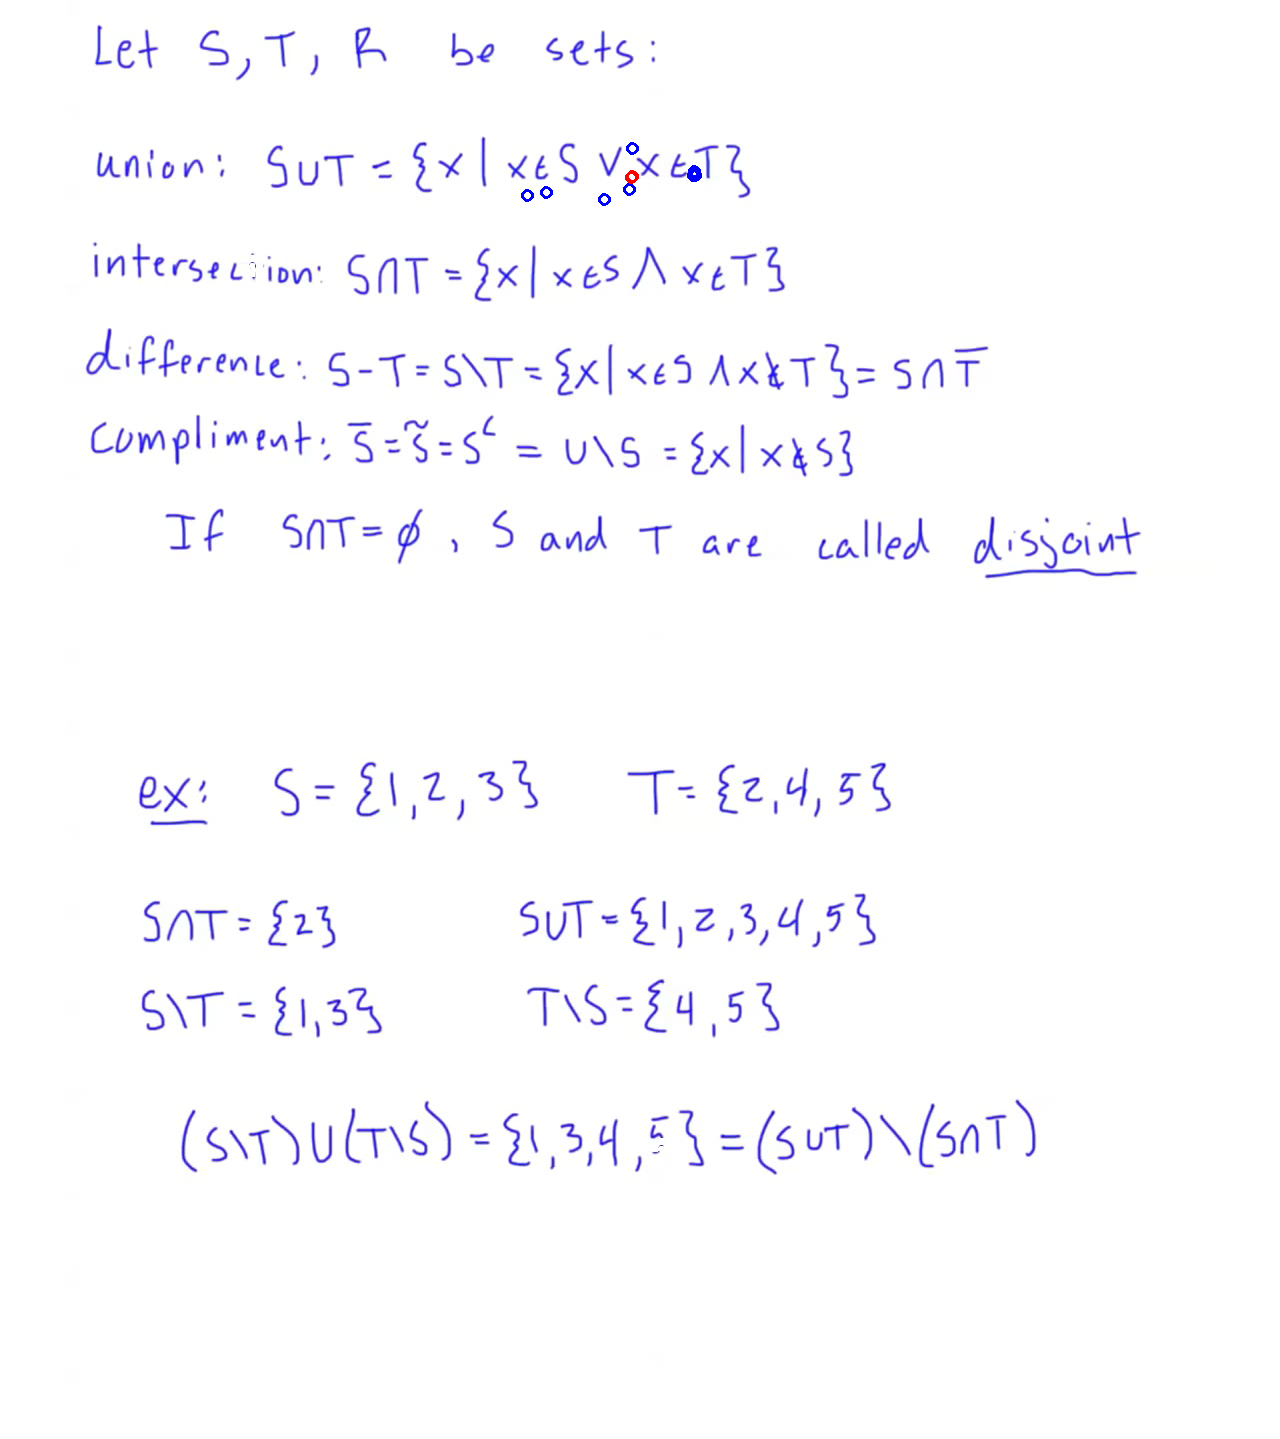 Let S, T, R be sets:
union: S∪T = {x | x∈S ∨ x∈T}
intersection: S∩T = {x | x∈S ∧ x∈T}
difference: S-T = S\T = {x | x∈S ∧ x∉T} = S∩T̅
Compliment: S̅ = S̃ = Sᶜ = U\S = {x | x∉S}
If S∩T = ∅, S and T are called disjoint
ex: S = {1,2,3} T = {2,4,5}
S∩T = {2} S∪T = {1,2,3,4,5}
S\T = {1,3} T\S = {4,5}
(S\T)∪(T\S) = {1,3,4,5} = (S∪T)\(S∩T)